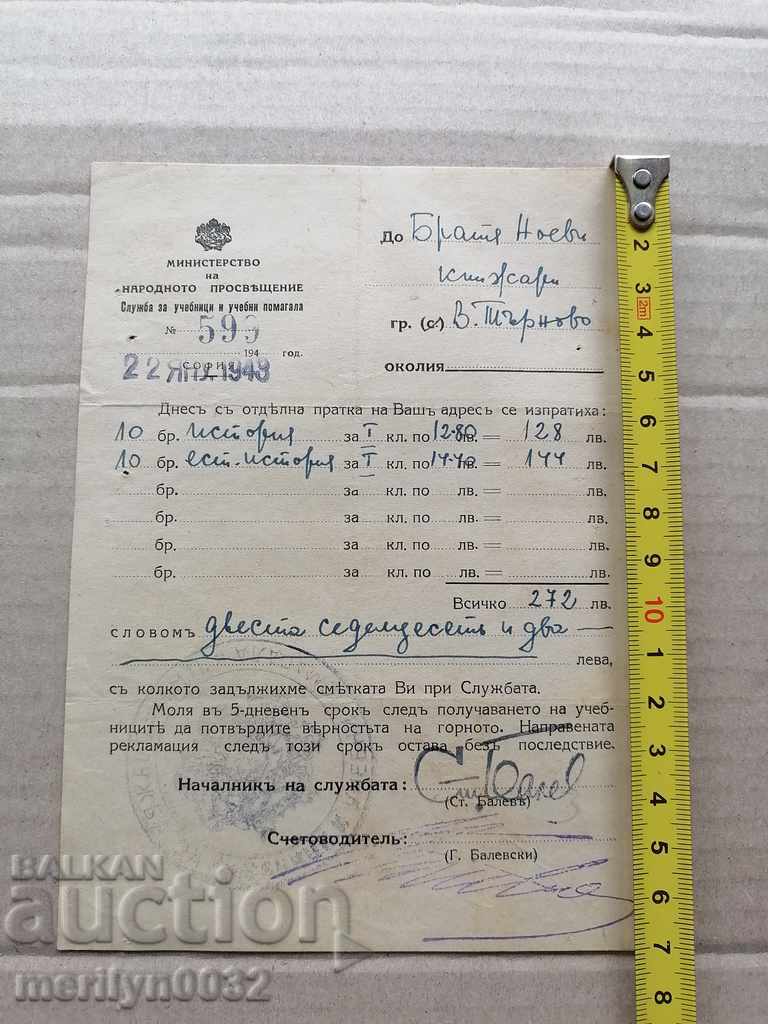 МИНИСТЕРСТВО
на
НАРОДНОТО ПРОСВѢЩЕНИЕ
Служба за учебници и учебни помагала
№ 599
194 год.
СОФИЯ
22 ЯНУ.1943
До Братя Ноеви
книжари
гр. (с.) В. Търново
околия
Днесъ съ отдѣлна пратка на Вашъ адресъ се изпратиха:
10 бр. история за I кл. по 12·80 лв. = 128 лв.
10 бр. ест. история за I кл. по 14·40 лв. = 144 лв.
бр. за кл. по лв. = лв.
бр. за кл. по лв. = лв.
бр. за кл. по лв. = лв.
бр. за кл. по лв. = лв.
Всичко 272 лв.
словомъ двеста седемдесетъ и два
лева,
съ колкото задължихме смѣтката Ви при Службата.
Моля въ 5-дневенъ срокъ следъ получаването на учеб-
ницитѣ да потвърдите вѣрностьта на горното. Направената
рекламация следъ този срокъ остава безъ последствие.
Началникъ на службата:
(Ст. Балевъ)
Счетоводитель:
(Г. Балевски)
BALKAN
auction
merilyn0032
2 3 2m 4 5 6 7 8 9 10 1 2 3 4 5 6 7 8